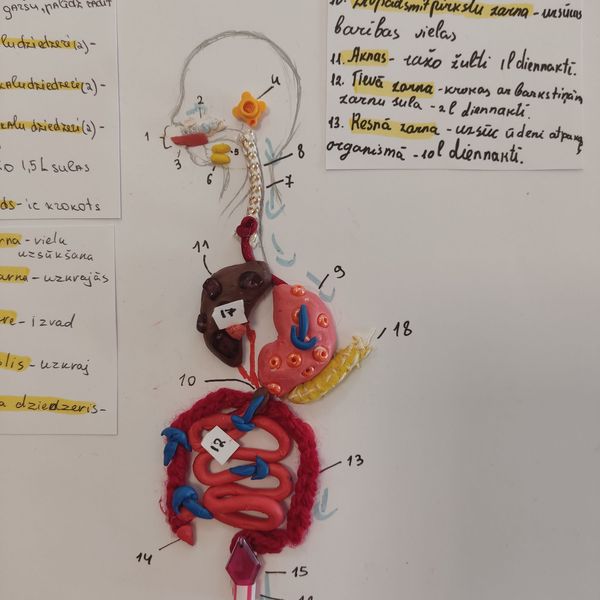 garšu, palīdz radīt
ludziedzeri(2)-
kaludziedzeri(2)-
kaļu dziedzeri(2)-
1,5 L sulas
ds- ir krokots
rna- vielu
uzsūkšana
arna- uzkrājās
re- izvad
lis- uzkrāj
a dziedzeris-
10. Divpadsmitpirkstu zarna - uzsūc
barības vielas
11. Aknas- ražo žulti 1l diennaktī.
12. Tievā zarna - krokas ar bārkstiņām
zarnu sula - 2l diennaktī.
13. Resnā zarna - uzsūc ūdeni atpakaļ
organismā - 10l diennaktī.
4
2
1
3
5
6
8
7
11
9
17
18
10
12
13
14
15